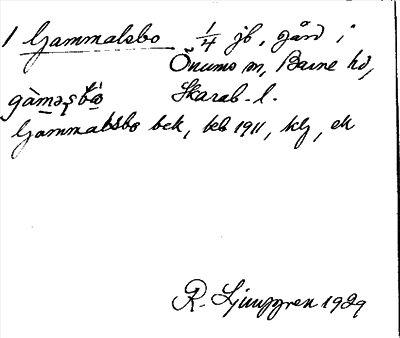 1 Gammalsbo 1/4 jb, gård i
Önums sn, Barne hd,
gàməsbó Skarab. l.
Gammalsbo bek, keb 1911, klg, ek
R. Ljunggren 1929